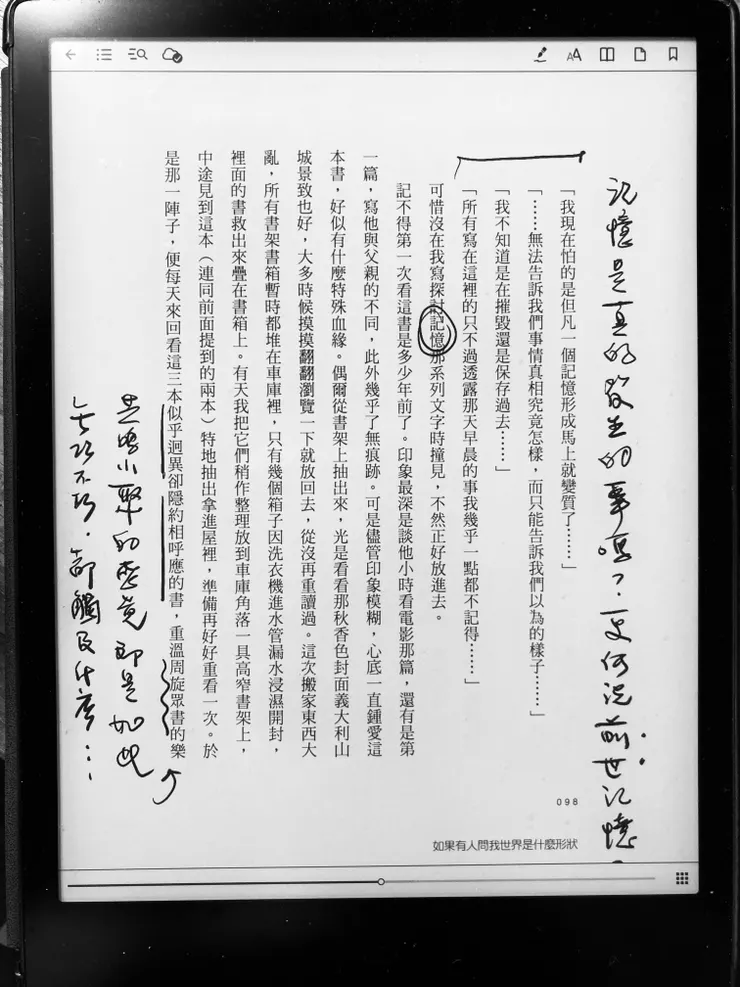 記憶是真的發生的事嗎?更何況前世記憶。
「我現在怕的是但凡一個記憶形成馬上就變質了……」
「……無法告訴我們事情真相究竟怎樣，而只能告訴我們以為的樣子……」
「我不知道是在摧毀還是保存過去……」
「所有寫在這裡的只不過透露那天早晨的事我幾乎一點都不記得……」
可惜沒在我寫探討記憶那系列文字時撞見，不然正好放進去。
記不得第一次看這書是多少年前了。印象最深是談他小時看電影那篇，還有是第
一篇，寫他與父親的不同，此外幾乎了無痕跡。可是儘管印象模糊，心底一直鍾愛這
本書，好似有什麼特殊血緣。偶爾從書架上抽出來，光是看看那秋香色封面義大利山
城景致也好，大多時候摸摸翻翻瀏覽一下就放回去，從沒再重讀過。這次搬家東西大
亂，所有書架書箱暫時都堆在車庫裡，只有幾個箱子因洗衣機進水管漏水浸濕開封，
裡面的書救出來疊在書箱上。有天我把它們稍作整理放到車庫角落一具高窄書架上，
中途見到這本（連同前面提到的兩本）特地抽出拿進屋裡，準備再好好重看一次。於
是那一陣子，便每天來回看這三本似乎迥異卻隱約相呼應的書，重溫周旋眾書的樂
都觸及什麼…
098
如果有人問我世界是什麼形狀